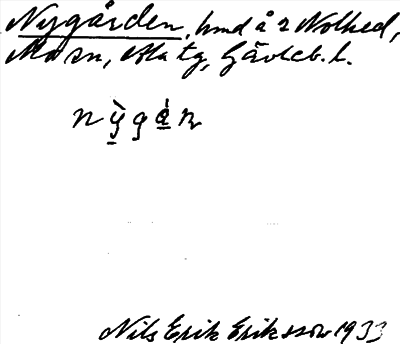 Nygården, hmd å 2 Nolhed,
Mo sn, Ala tg, Gävleb. l.
nỳgá̱n
Nils Erik Eriksson 1933